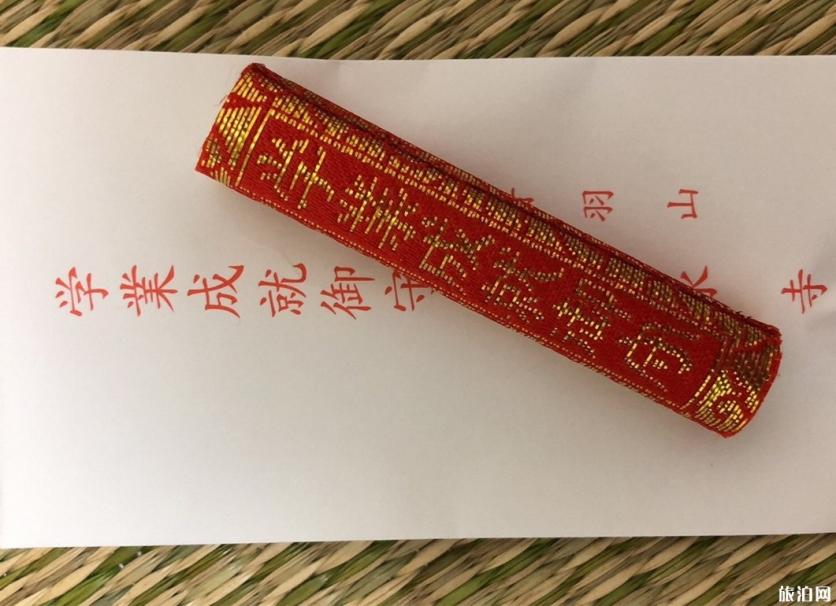 羽山
学業成就御守
水寺
学業成就御守
旅泊网